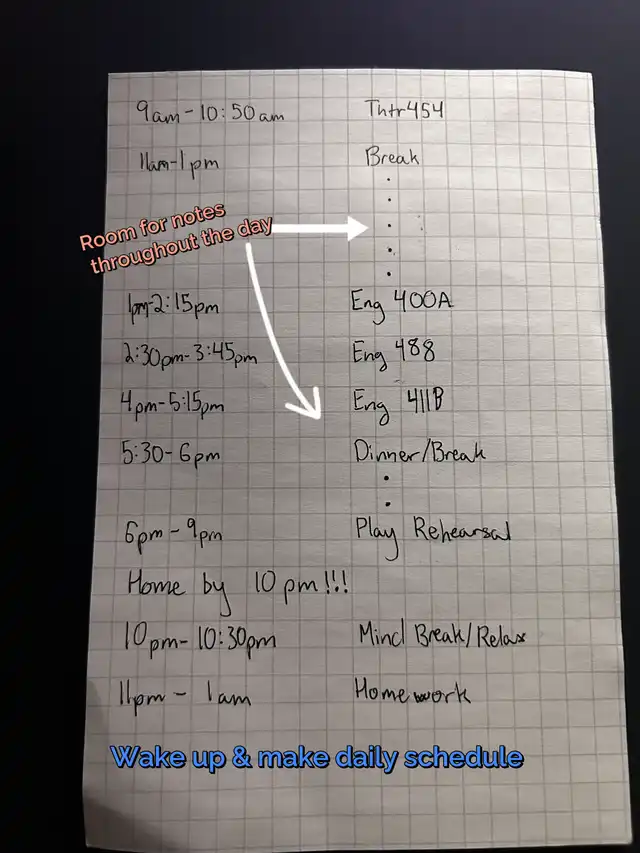 9am - 10:50am Thtr454
11am-1pm Break
Room for notes
throughout the day
1pm-2:15pm Eng 400A
2:30pm-3:45pm Eng 488
4pm-5:15pm Eng 411B
5:30-6pm Dinner/Break
6pm - 9pm Play Rehearsal
Home by 10pm!!!
10pm-10:30pm Mind Break/Relax
11pm - 1am Homework
Wake up & make daily schedule